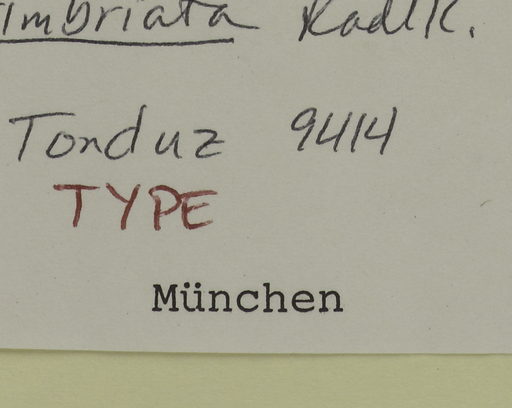 imbriata Radlk.
Tonduz 9414
TYPE
München